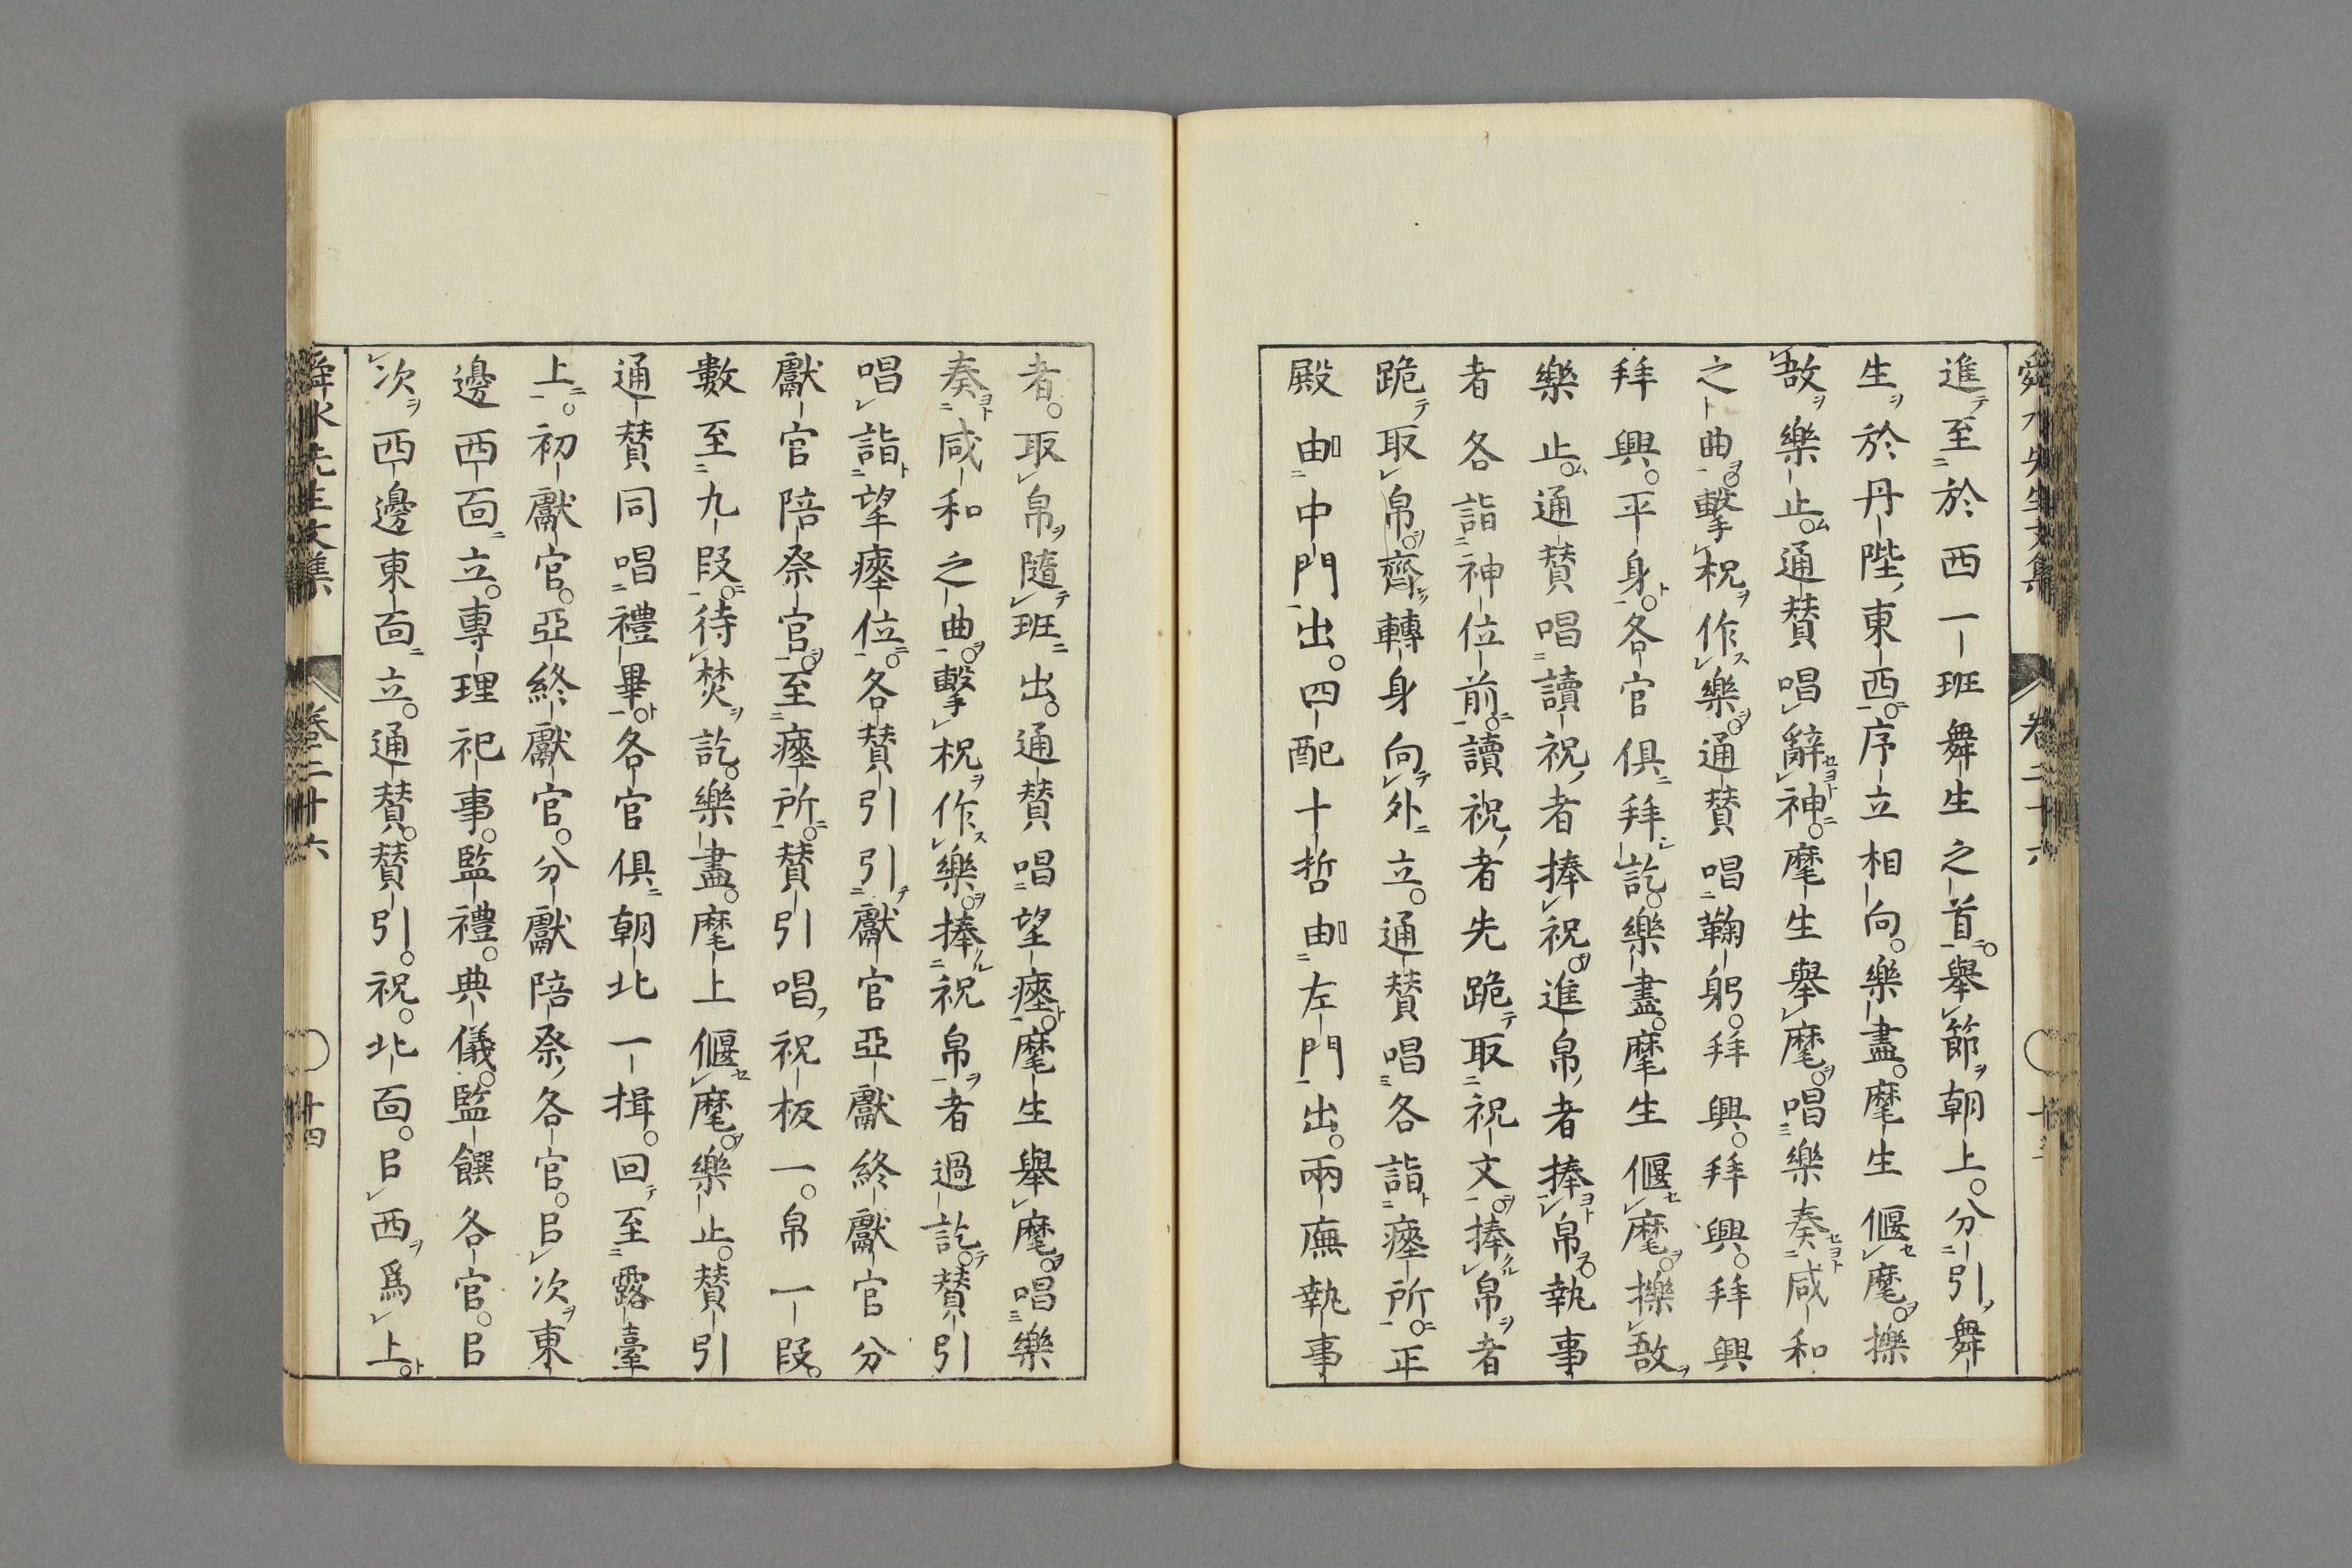 舜水先生文集 卷二十六 十三
進至於西一班舞生之首。舉節朝上。分引舞
生於丹陛東西。序立相向。樂盡。麾生偃麾。擽
敔樂止。通賛唱辭神。麾生舉麾。唱樂奏咸和
之曲。擊柷作樂。通賛唱鞠躬。拜興。拜興。拜興
拜興。平身。各官俱拜訖。樂盡。麾生偃麾。擽敔
樂止。通賛唱讀祝者捧祝。進帛者捧帛。執事
者各詣神位前。讀祝者先跪取祝文。捧帛者
跪取帛。齊轉身向外立。通賛唱各詣瘞所。正
殿由中門出。四配十哲由左門出。兩廡執事
者。取帛隨班出。通賛唱望瘞。麾生舉麾。唱樂
奏咸和之曲。擊柷作樂。捧祝帛者過訖。賛引
唱詣望瘞位。各賛引引獻官亞獻終獻官分
獻官陪祭官。至瘞所。賛引唱祝板一。帛一段。
數至九段。待焚訖。樂盡。麾上偃麾。樂止。賛引
通賛同唱禮畢。各官俱朝北一揖。回至露臺
上。初獻官。亞終獻官。分獻陪祭各官。㠯次東
邊西面立。專理祀事。監禮。典儀。監饌各官。㠯
次西邊東面立。通賛。賛引。祝。北面。㠯西爲上。
舜水先生文集 卷二十六 十四